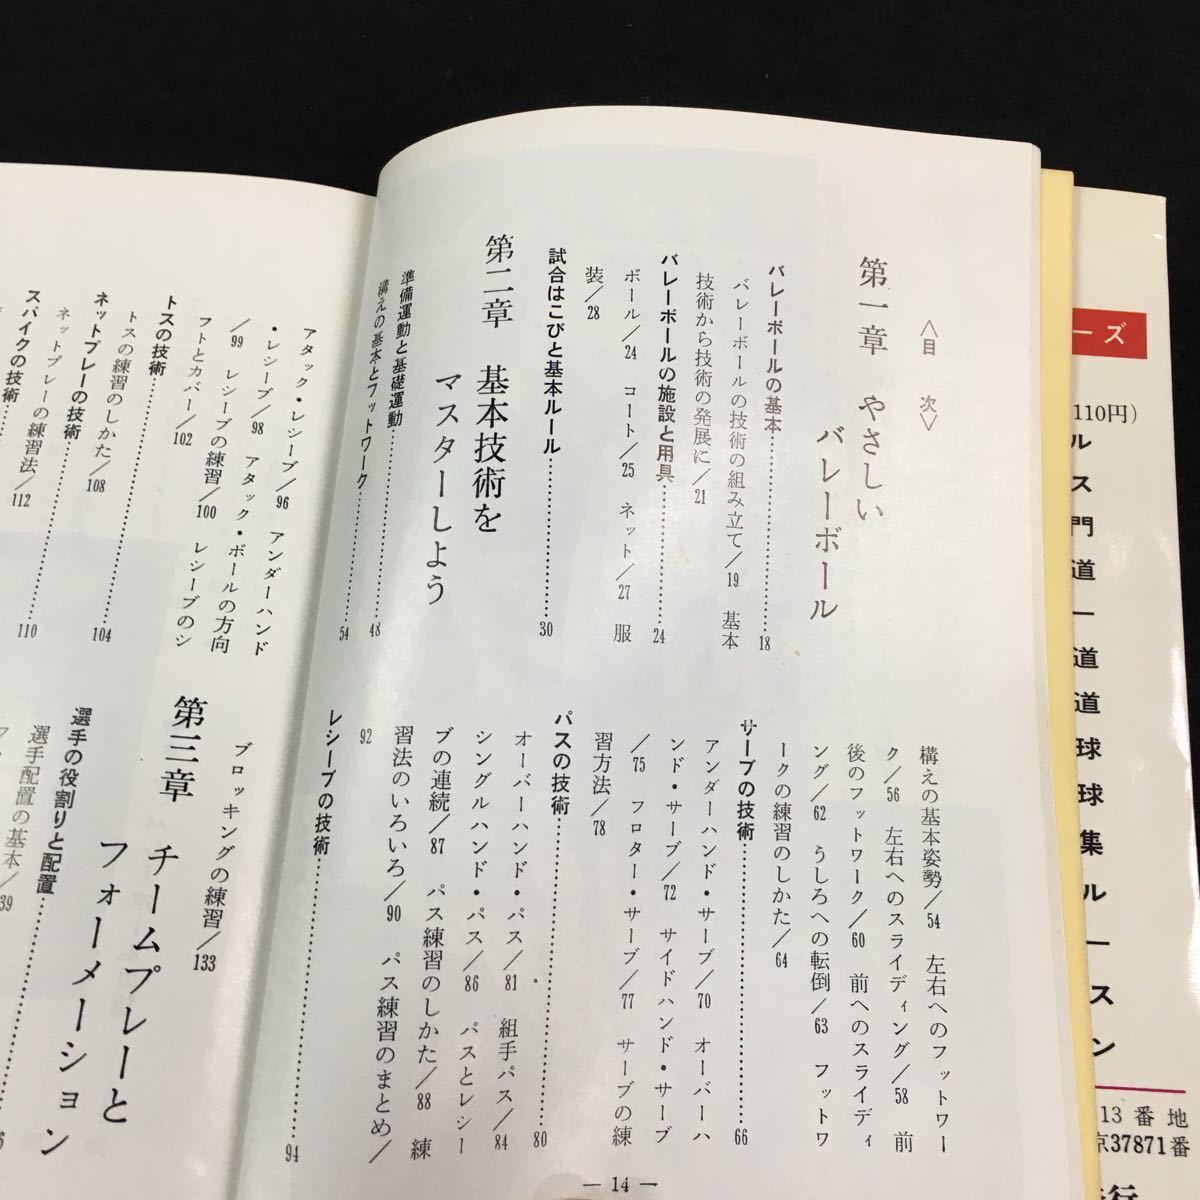 〈目　次〉
第一章　やさしい
バレーボール
バレーボールの基本……………18
バレーボールの技術の組み立て/19　基本
技術から技術の発展に/21
バレーボールの施設と用具……………24
ボール/24　コート/25　ネット/27　服
装/28
試合はこびと基本ルール……………30
第二章　基本技術を
マスターしよう
準備運動と基礎運動……………48
構えの基本とフットワーク……………54
構えの基本姿勢/54　左右へのフットワー
ク/56　左右へのスライディング/58　前
後のフットワーク/60　前へのスライディ
ング/62　うしろへの転倒/63　フットワ
ークの練習のしかた/64
サーブの技術……………66
アンダーハンド・サーブ/70　オーバーハ
ンド・サーブ/72　サイドハンド・サーブ
/75　フローター・サーブ/77　サーブの練
習方法/78
パスの技術……………80
オーバーハンド・パス/81　組手パス/84
シングルハンド・パス/86　パスとレシー
ブの連続/87　パス練習のしかた/88　練
習法のいろいろ/90　パス練習のまとめ/
92
レシーブの技術……………94
— 14 —
アタック・レシーブ/96　アンダーハンド
・レシーブ/98　アタック・ボールの方向
/99　レシーブの練習/100　レシーブのシ
フトとカバー/102
トスの技術……………104
トスの練習のしかた/108
ネットプレーの技術……………110
ネットプレーの練習法/112
スパイクの技術
ブロッキングの練習/133
第三章　チームプレーと
フォーメーション
選手の役割りと配置
選手配置の基本/139
ーズ
110円)
ル
ス
門
道
ー
道
道
球
球
集
ル
ー
ス
ン
13番地
京37871番